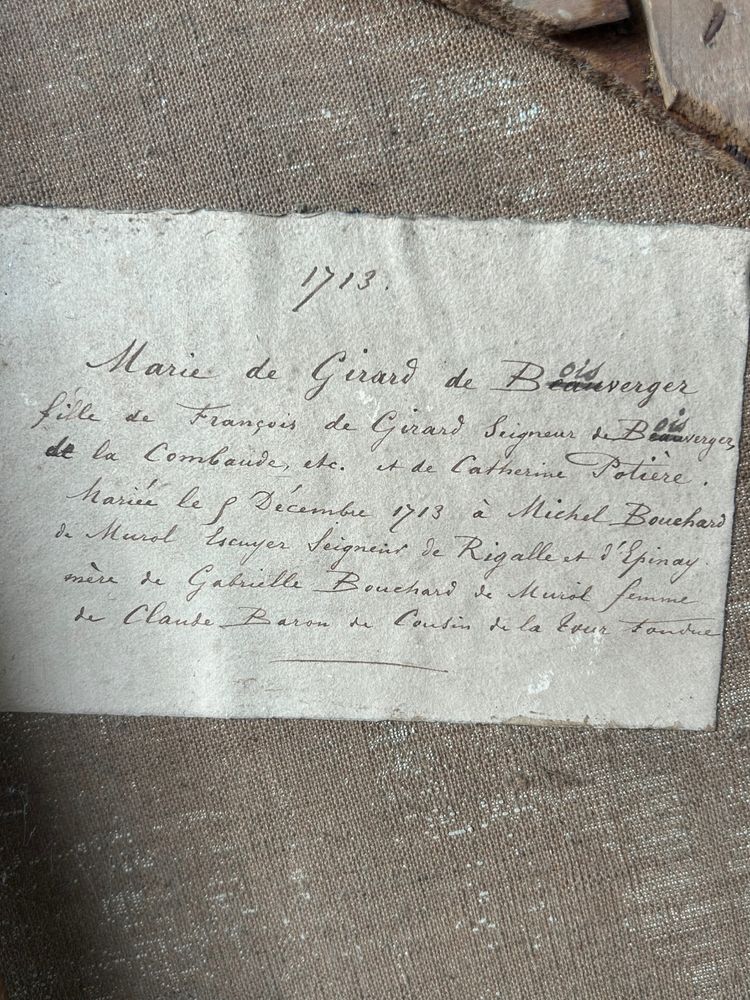 1713.
Marie de Girard de Boisverger
fille de François de Girard Seigneur de Boisverger,
de la Combaude, etc. et de Catherine Potière.
Mariée le 5 Décembre 1713 à Michel Bouchard
de Murol Escuyer Seigneur de Rigalle et d'Epinay.
mère de Gabrielle Bouchard de Murol femme
de Claude Baron de Cousin de la Tour Fondue